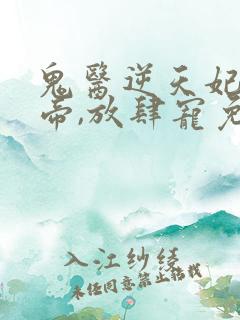 鬼醫逆天妃
帝,放肆寵免
入江紗綾
未经同意禁止转载